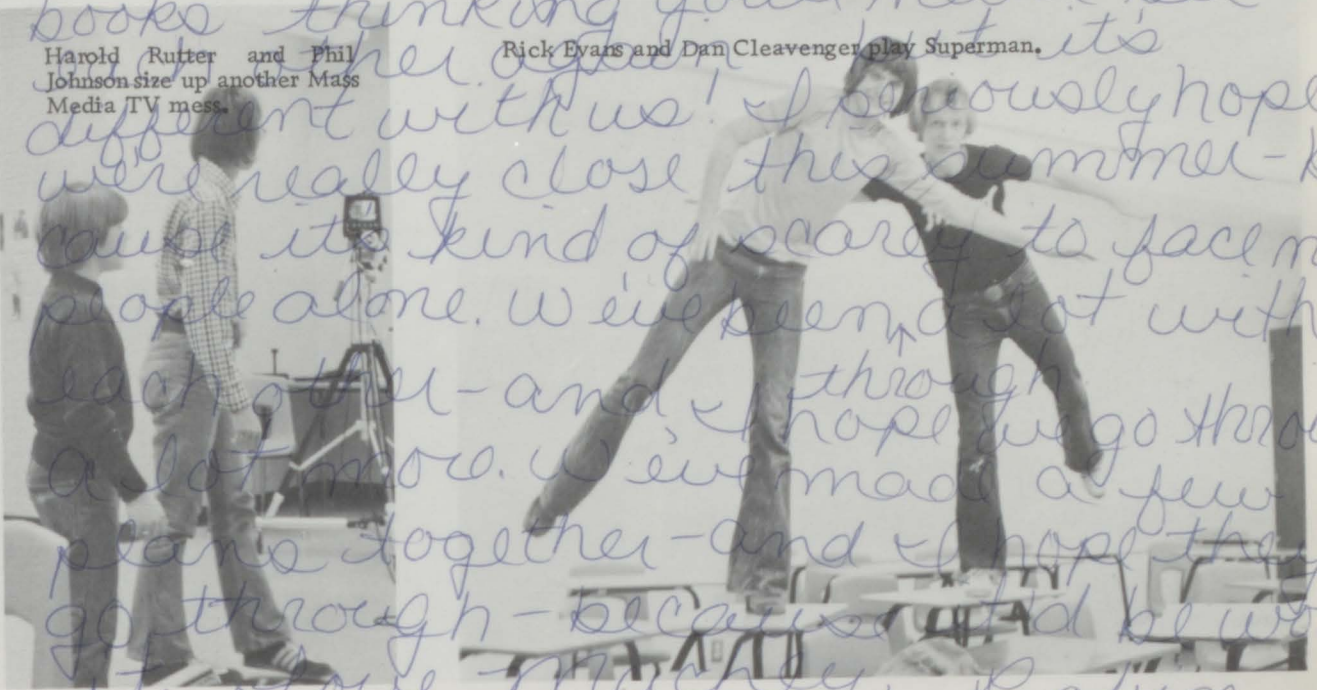 Harold Rutter and Phil
Johnson size up another Mass
Media TV mess.
Rick Evans and Dan Cleavenger play Superman.
books thinking
other again but it's
different with us! I seriously hope
we're really close this summer-
cause its kind of scarey to face
people alone. We've been lot with
through
each other-and I hope we go thro
a lot more. We've made a few
plans together-and I hope they
go through-because it'd be wo